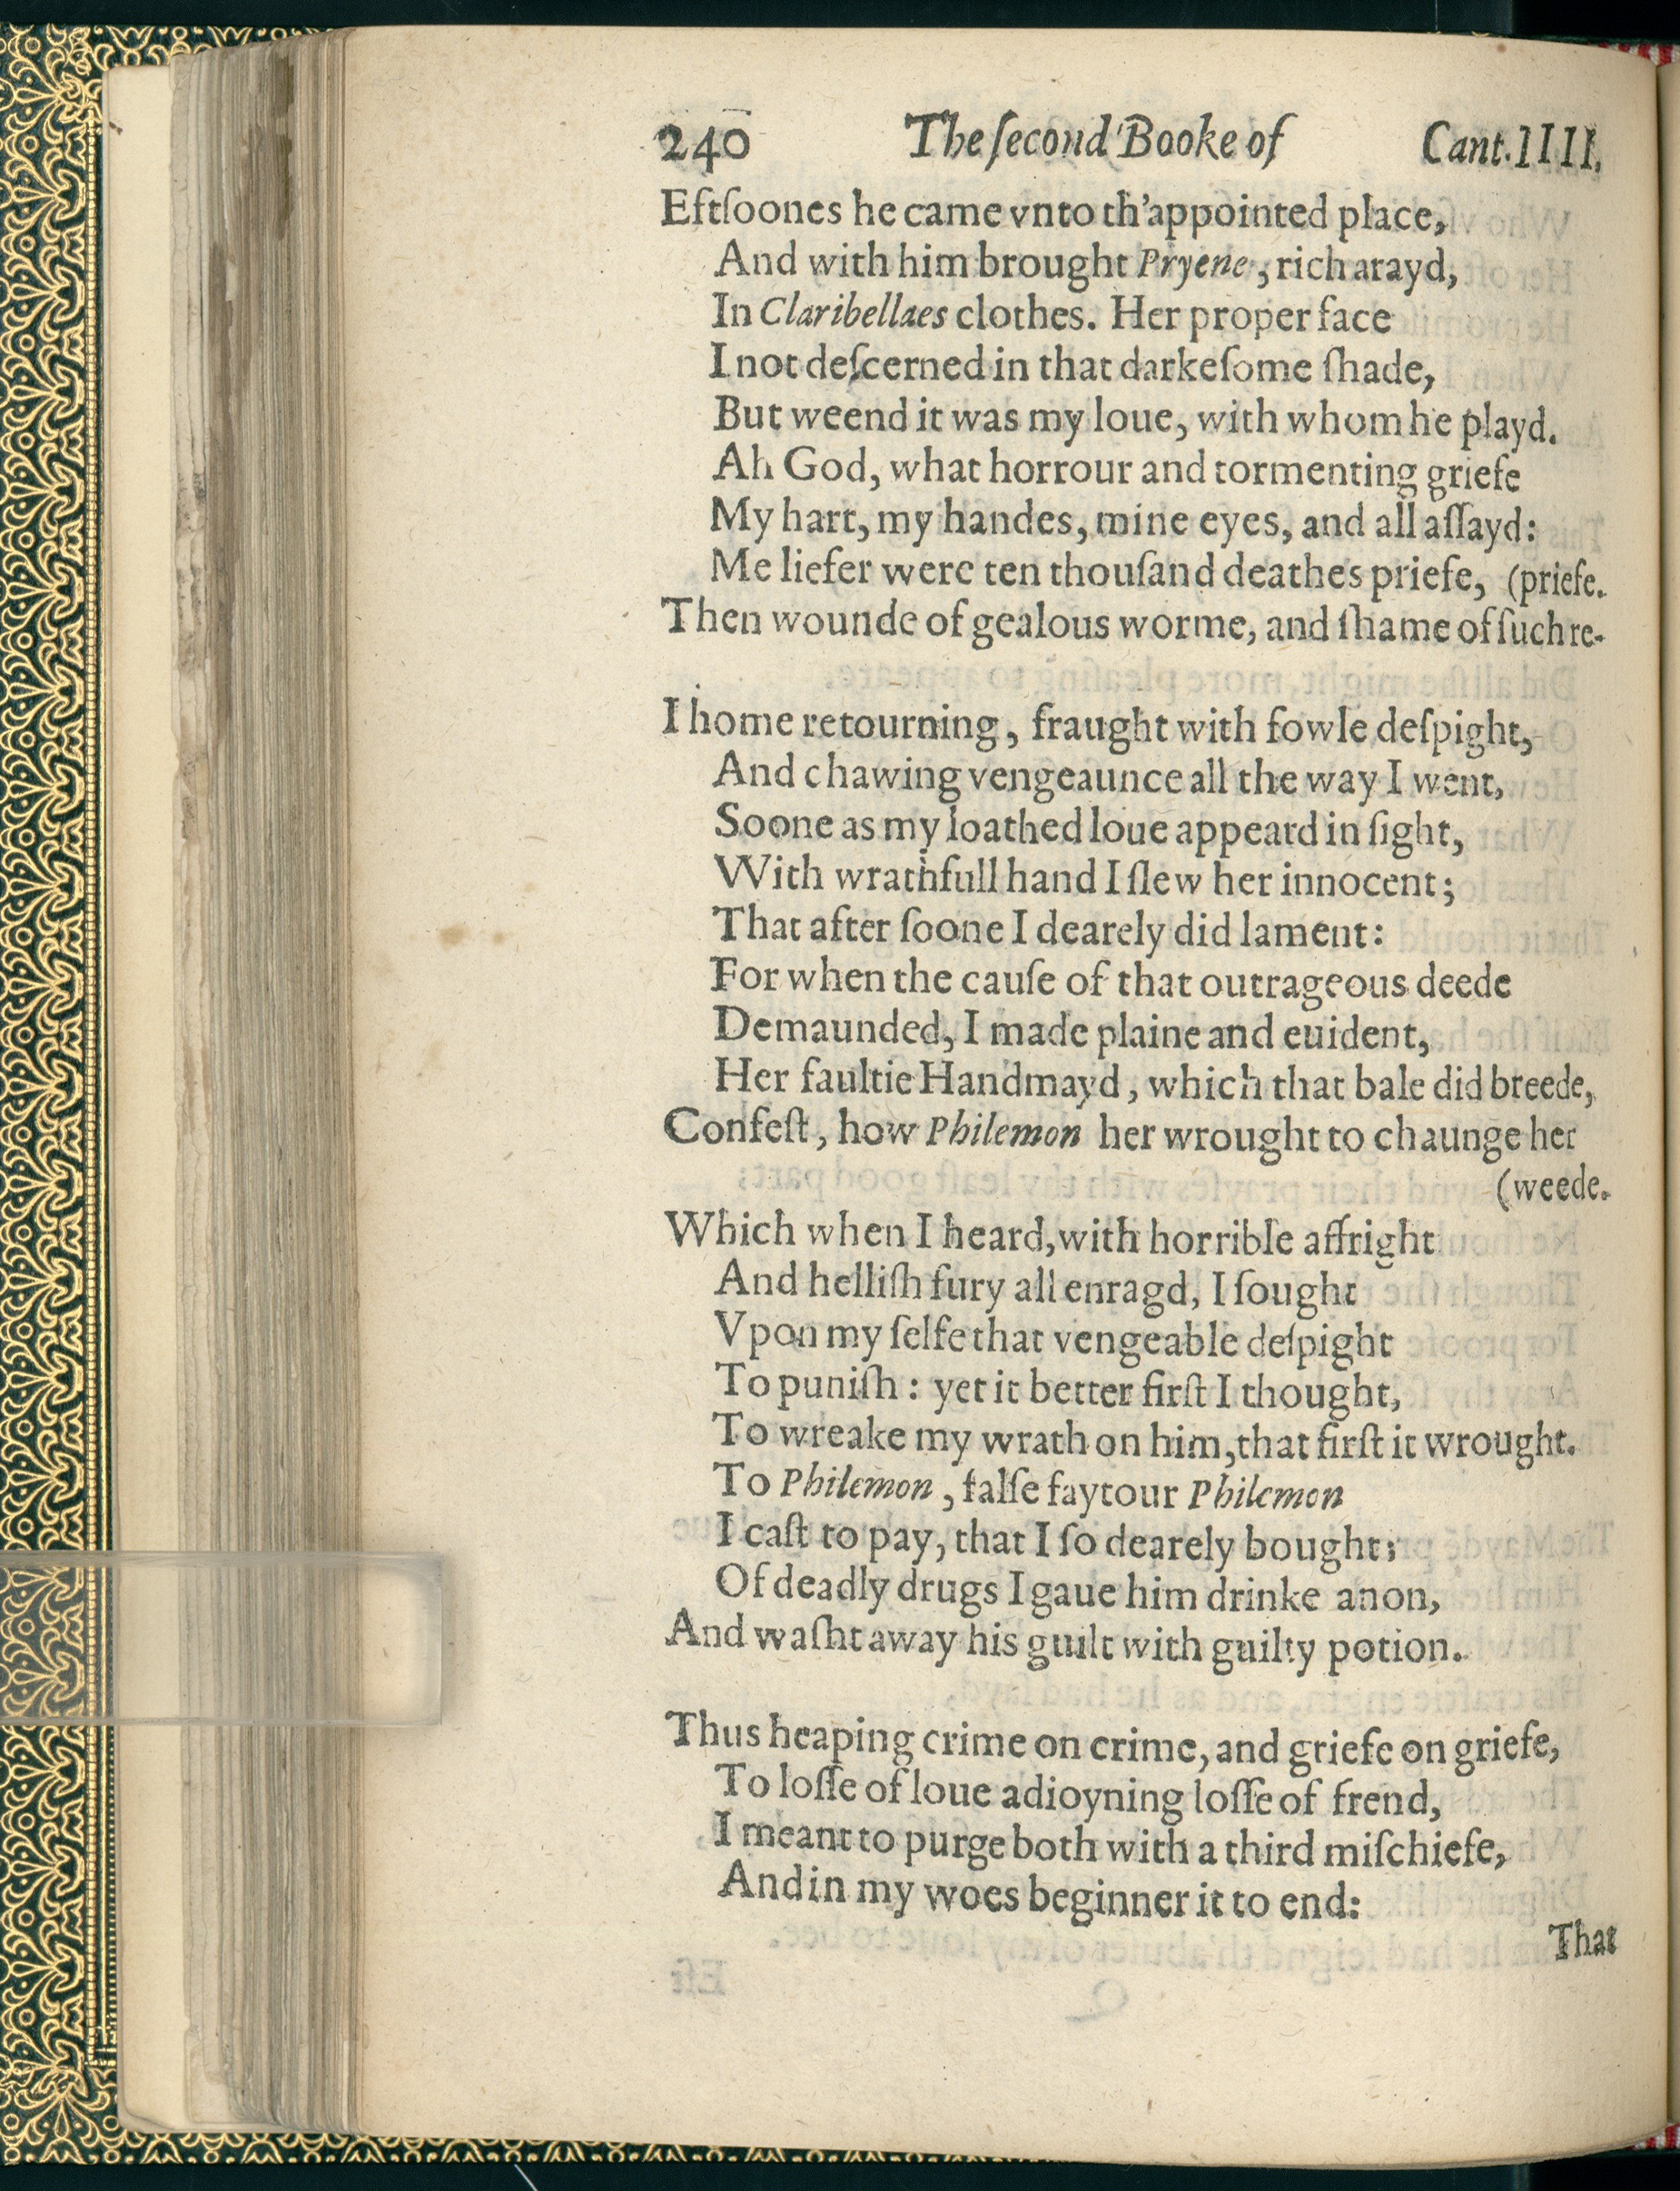 240 The ſecond Booke of Cant. IIII.
Eftſoones he came vnto th'appointed place,
And with him brought Pryene, rich arayd,
In Claribellaes clothes. Her proper face
I not deſcerned in that darkeſome ſhade,
But weend it was my loue, with whom he playd.
Ah God, what horrour and tormenting griefe
My hart, my handes, mine eyes, and all aſſayd:
Me liefer were ten thouſand deathes priefe, (priefe.
Then wounde of gealous worme, and ſhame of ſuch re-
I home retourning, fraught with fowle deſpight,
And chawing vengeaunce all the way I went,
Soone as my loathed loue appeard in ſight,
With wrathfull hand I ſlew her innocent;
That after ſoone I dearely did lament:
For when the cauſe of that outrageous deede
Demaunded, I made plaine and euident,
Her faultie Handmayd, which that bale did breede,
Confeſt, how Philemon her wrought to chaunge her
(weede.
Which when I heard, with horrible affright
And helliſh fury all enragd, I ſought
Vpon my ſelfe that vengeable deſpight
To puniſh: yet it better firſt I thought,
To wreake my wrath on him, that firſt it wrought.
To Philemon, falſe faytour Philemon
I caſt to pay, that I ſo dearely bought;
Of deadly drugs I gaue him drinke anon,
And waſht away his guilt with guilty potion.
Thus heaping crime on crime, and griefe on griefe,
To loſſe of loue adioyning loſſe of frend,
I meant to purge both with a third miſchiefe,
And in my woes beginner it to end:
That